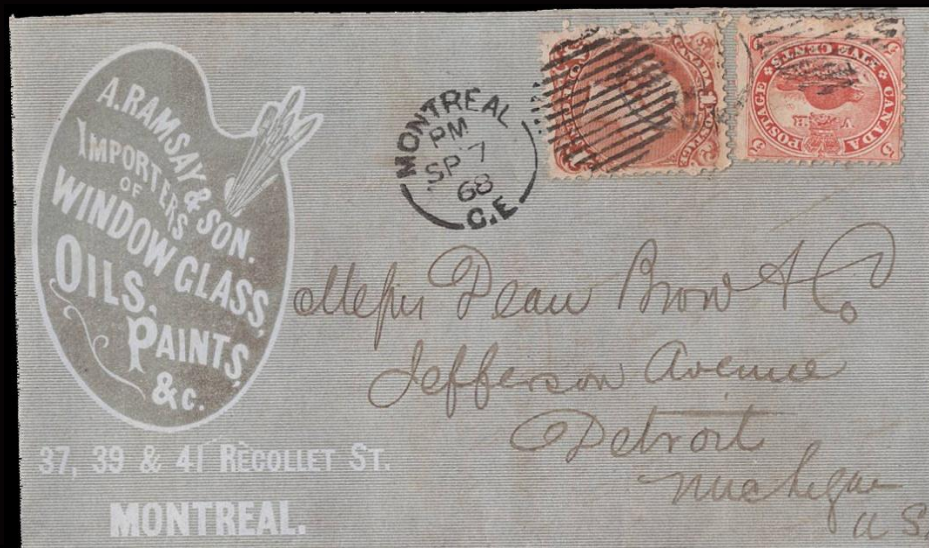 A. RAMSAY & SON.
IMPORTERS
OF
WINDOW GLASS,
OILS,
PAINTS,
&c.
37, 39 & 41 RECOLLET ST.
MONTREAL.
MONTREAL
PM
SP 7
68
C.E.
CANADA POSTAGE
1
CANADA POSTAGE
FIVE CENTS
5
5
5
5
Messrs Dean Brow & Co
Jefferson Avenue
Detroit
Michigan
U S